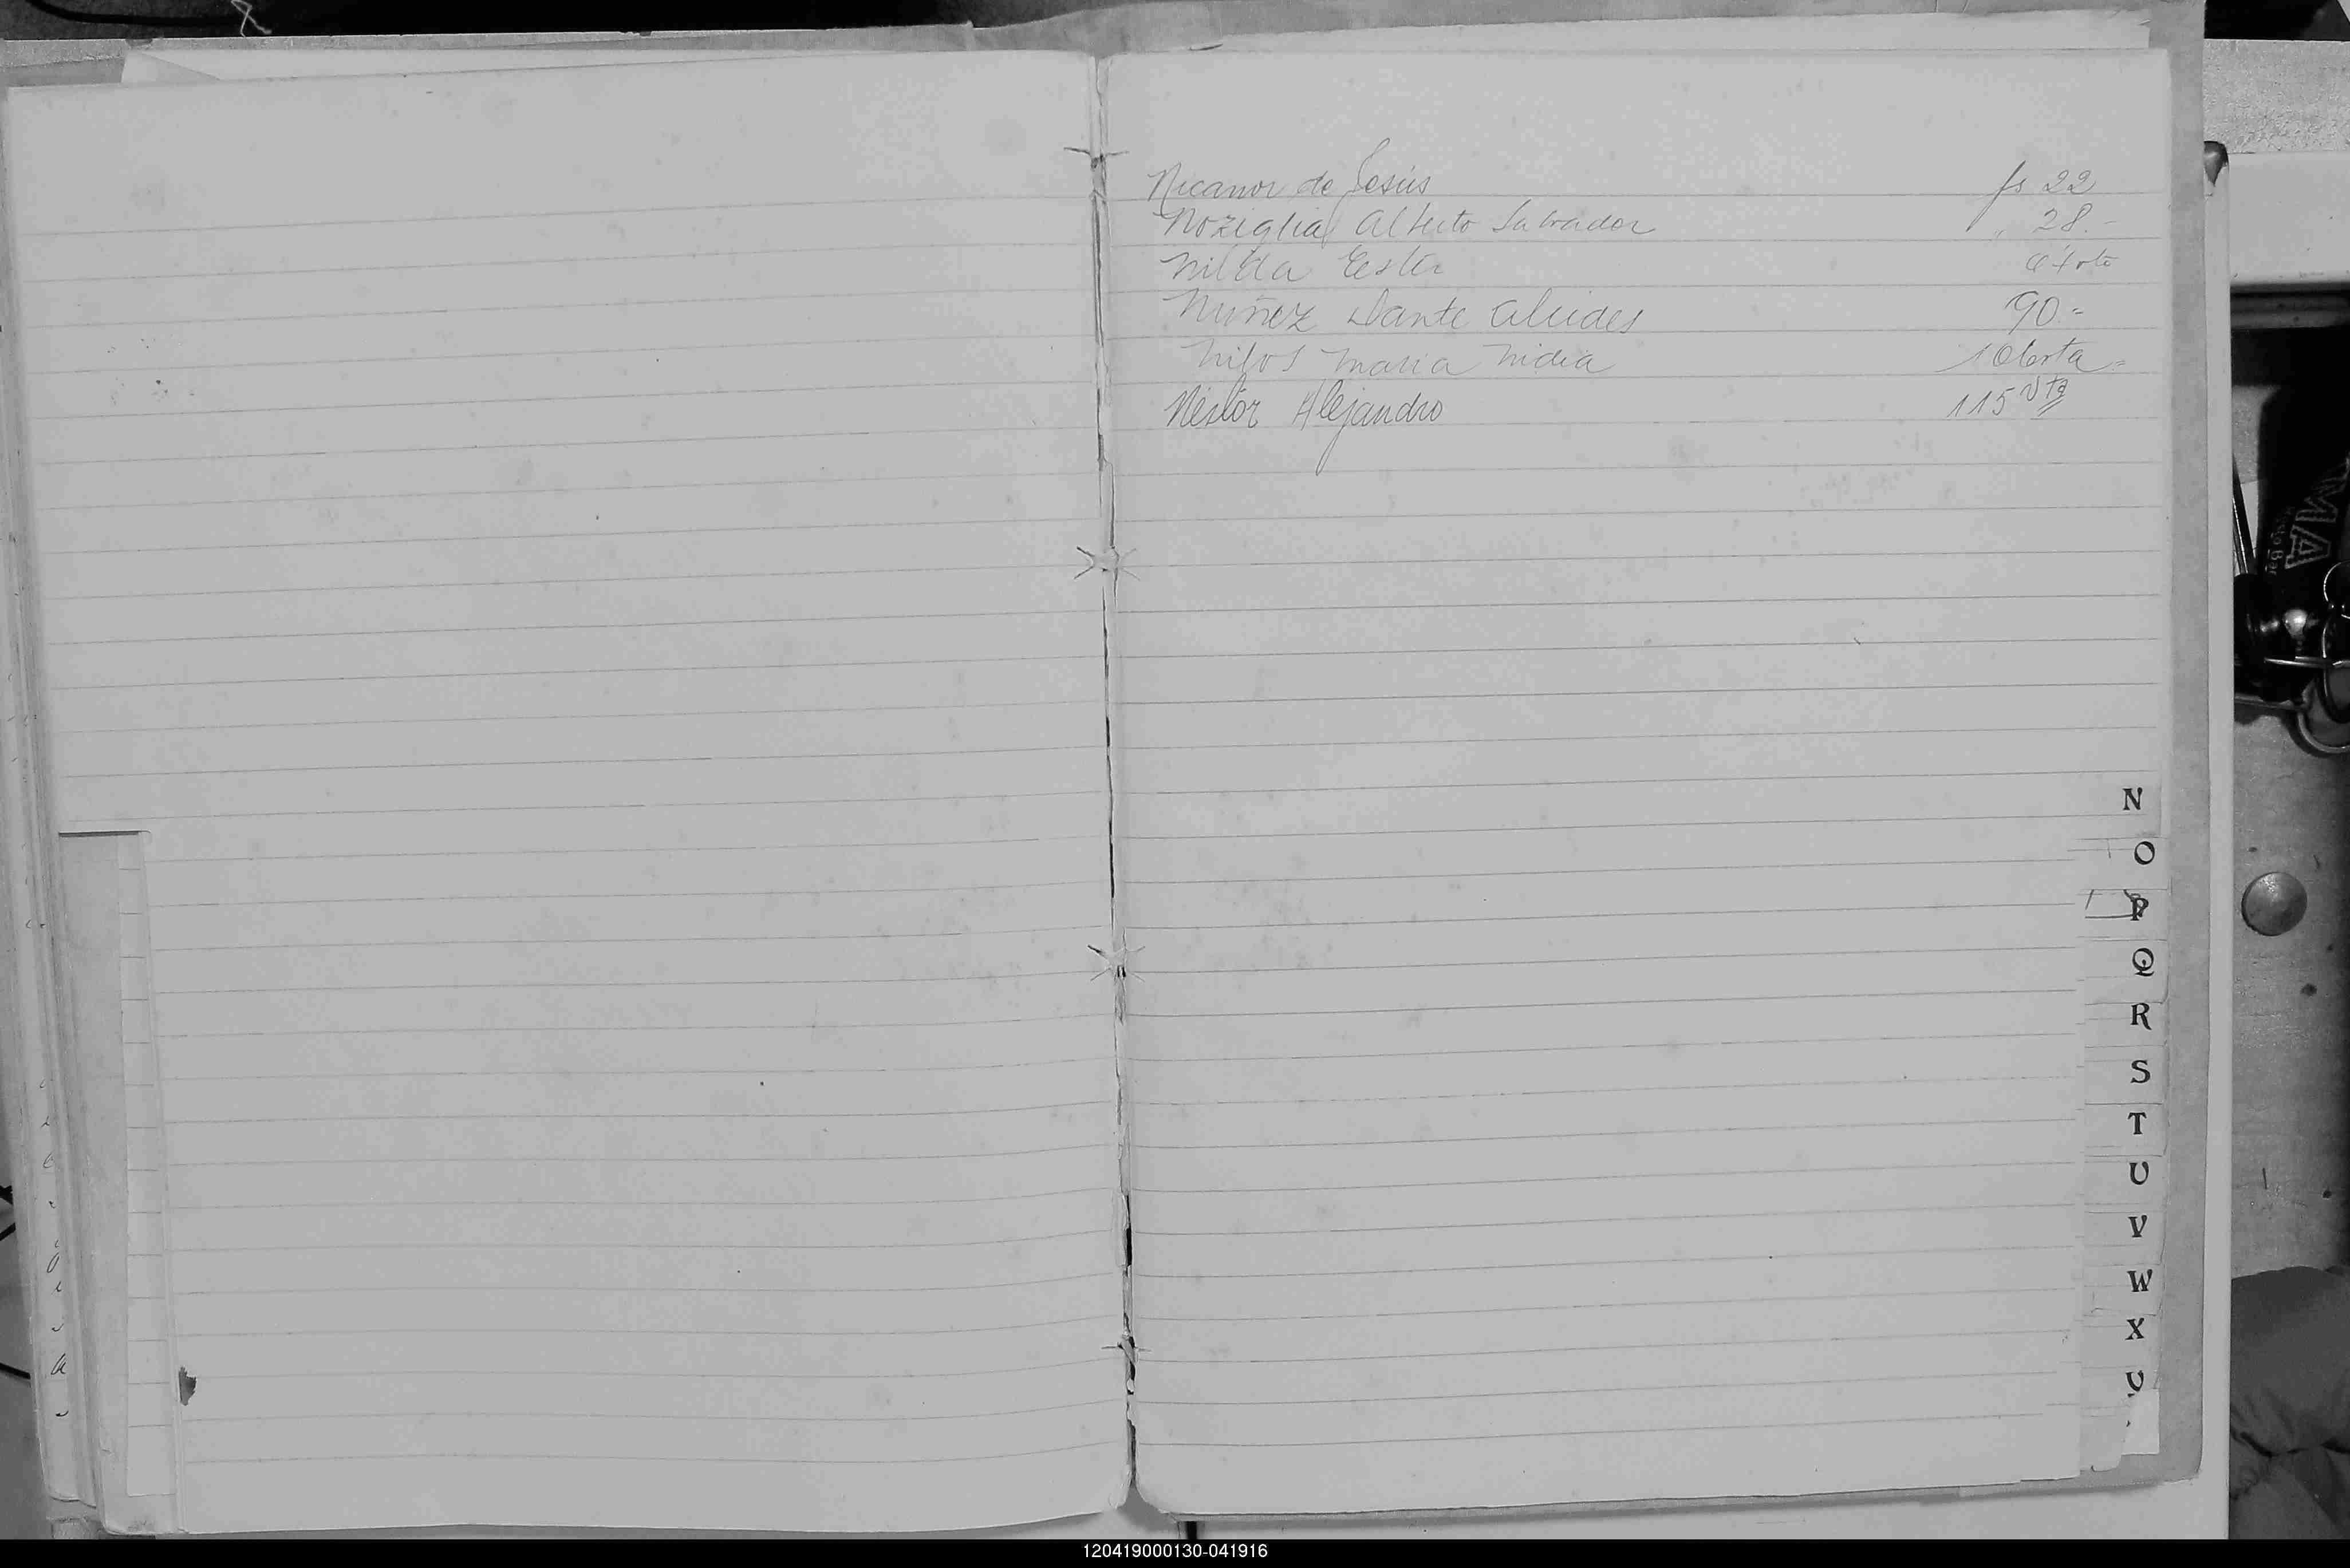 Nicanor de Jesús fs 22
Noziglia Alberto Salvador " 28.-
Nilda Ester
Nuñez Dante Alcides 90.-
Nilos Maria Nidia
Néstor Alejandro 115 vta
N
O
P
Q
R
S
T
U
V
W
X
120419000130-041916